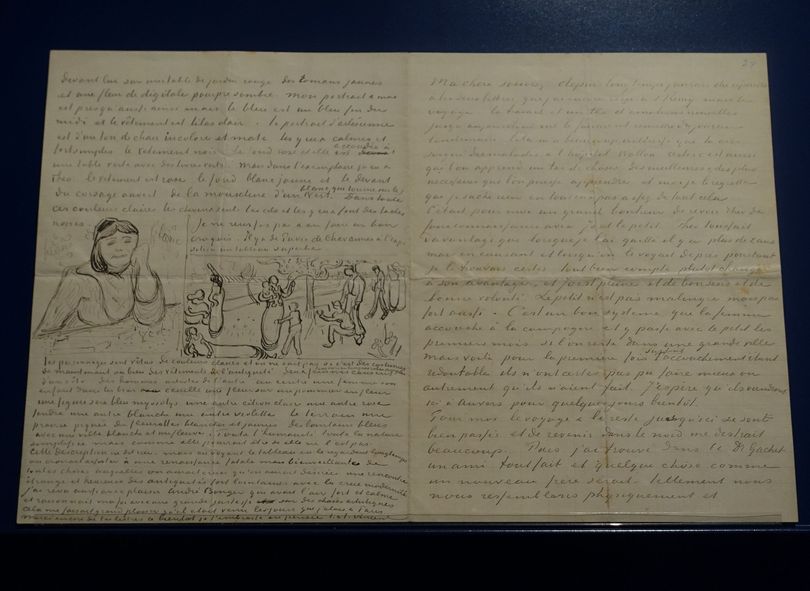 devant lui sur une table de jardin rouge des romans jaunes
et une fleur de digitale pourpre sombre. Mon portrait à moi
est presqu'aussi ainsi mais le bleu est un bleu fin du
midi et le vêtement est lilas clair. Le portrait d'arlésienne
est d'un ton de chair incolore et mate les yeux calmes et
fort simples le vêtement noir le fond rose et elle est accoudée à
une table verte avec des livres verts. Mais dans l'exemplaire qu'en a
Theo le vêtement est rose le fond blanc jaune et le devant
du corsage ouvert de la mousseline d'un blanc qui tourne sur le
vert. Dans toutes
ces couleurs claires les cheveux seuls les cils et les yeux font des taches
noires.
Je ne réussis pas à en faire un bon
croquis. Il y a de Puvis de Chavannes à l'exposi
sition un tableau superbe
les personnages sont vêtus de couleurs claires et on ne sait pas si c'est des costumes
de maintenant ou bien des vêtements de l'antiquité
des hommes artistes de l'autre au centre une femme son
enfant dans les bras cueille une fleur sur un pommier en fleur
une figure sera bleu myosotys une autre citron clair une autre rose
tendre une autre blanche une autre violette. Le terrain une
prairie piquée de fleurettes blanches et jaunes. Des lointains bleus
avec une ville blanche et un fleuve. Toute l'humanité toute la nature
simplifiée mais comme elle pourrait être si elle ne l'est pas.
Cette description ne dit rien – mais en voyant le tableau en le regardant longtemps
on croirait assister à une renaissance fatale mais bienveillante de
toutes choses auxquelles on aurait cru qu'on aurait désirées une rencontre
étrange et heureuse des antiquités fort lointaines avec la crue modernité
j'ai revu aussi avec plaisir André Bonger qui avait l'air fort et calme
et raisonnait ma foi avec une grande justesse sur des choses artistiques
cela me faisait grand plaisir qu'il était venu les jours que j'étais à Paris
Merci encore de tes lettres à bientôt je t'embrasse en pensée t. à t. Vincent
Ma chère soeur, depuis longtemps j'aurais dû répondre
à tes deux lettres, que j'ai encore reçues à St Rémy mais le
voyage le travail et un tas d'émotions nouvelles
jusqu'aujourd'hui me le faisaient remettre de jour en
lendemain. Cela m'a beaucoup intéressé que tu aies
soigné des malades à l'hôpital Wallon certes c'est ainsi
que l'on apprend un tas de choses des meilleures et des plus
nécessaires que l'on puisse apprendre et moi je le regrette
que je sache rien en tout cas pas assez de tout cela
C'était pour moi un grand bonheur de revoir Theo de
faire connaissance avec jo et le petit. Theo toussait
davantage que lorsque je l'ai quitté il y a plus de 2 ans
mais en causant et lorsqu'on le voyait de près pourtant
je le trouvais certes tout bien compté plutôt changé
à son avantage, et jo est pleine et de bon sens et de
bonne volonté. Le petit n'est pas malingre mais pas
fort aussi. – C'est un bon système que la femme
accouche à la campagne et y passe avec le petit les
premiers mois. Se trouvant dans une grande ville
mais voilà pour la première fois surtout l'accouchement étant
redoutable ils n'ont certes pas pu faire mieux ou
autrement qu'ils n'aient fait. J'espère qu'ils viendront
ici à Auvers pour quelques jours bientôt.
Pour moi le voyage et le reste jusqu'ici se sont
bien passés, et de revenir dans le nord me distrait
beaucoup. Puis j'ai trouvé dans le Dr Gachet
un ami tout fait et quelque chose comme
un nouveau frère serait – tellement nous
nous ressemblons physiquement et